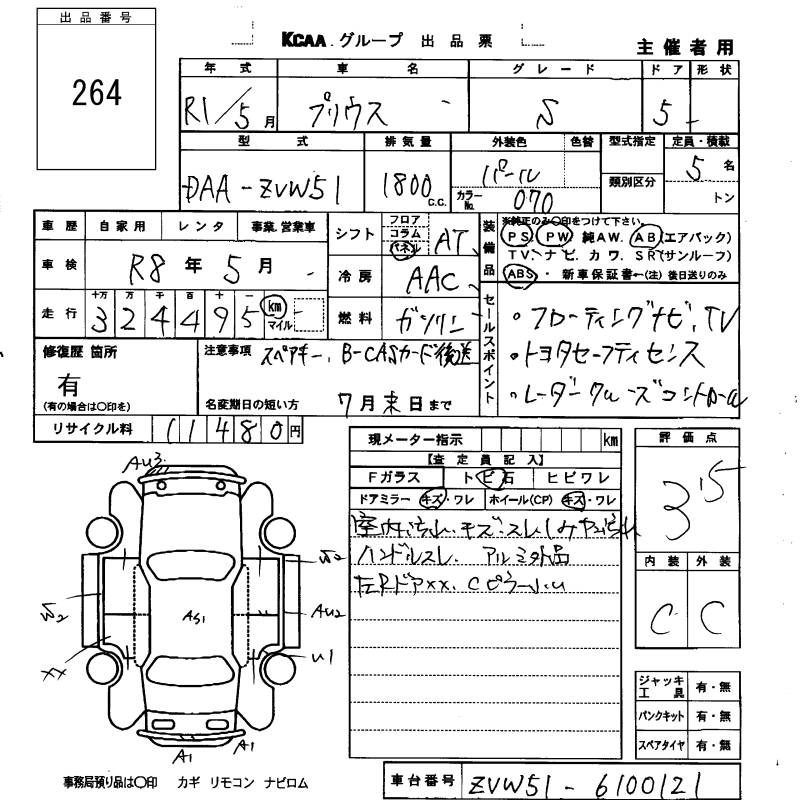 出品番号
264
KCAA グループ 出品票
主催者用
年式 車名 グレード ドア 形状
R1/5月 プリウス S 5
型式 排気量 外装色 色替 型式指定 定員・積載
DAA-ZVW51 1800 C.C. パール 類別区分 5名
カラーNo. 070 トン
車歴 自家用 レンタ 事業.営業車
シフト フロア コラム パネル AT
装備品 ※純正のみ○印をつけて下さい。
PS PW 純AW. AB(エアバック)
TV.ナビ.カワ.SR(サンルーフ)
ABS・新車保証書←(注)後日送りのみ
車検 R8年5月
冷房 AAC
走行 十万 万 千 百 十 一
324495 km マイル
燃料 ガソリン
セールスポイント
・フローティングナビ、TV
・トヨタセーフティセンス
・レーダークルーズコントロール
修復歴 箇所
有
(有の場合は○印を)
注意事項 スペアキー、B-CASカード後送
名変期日の短い方 7月末日まで
リサイクル料 11480円
現メーター指示 km
【査定員記入】
Fガラス トビ石 ヒビワレ
ドアミラー キズ・ワレ ホイール(CP) キズ・ワレ
ハンドルスレ、アルミ外品
左Rドアxx、CピラーU
評価点
3.5
内装 外装
C C
AU3
W2
W2
AS1
AU2
XX
U1
A1
A1
ジャッキ工具 有・無
パンクキット 有・無
スペアタイヤ 有・無
事務局預り品は○印 カギ リモコン ナビロム
車台番号 ZVW51-6100121